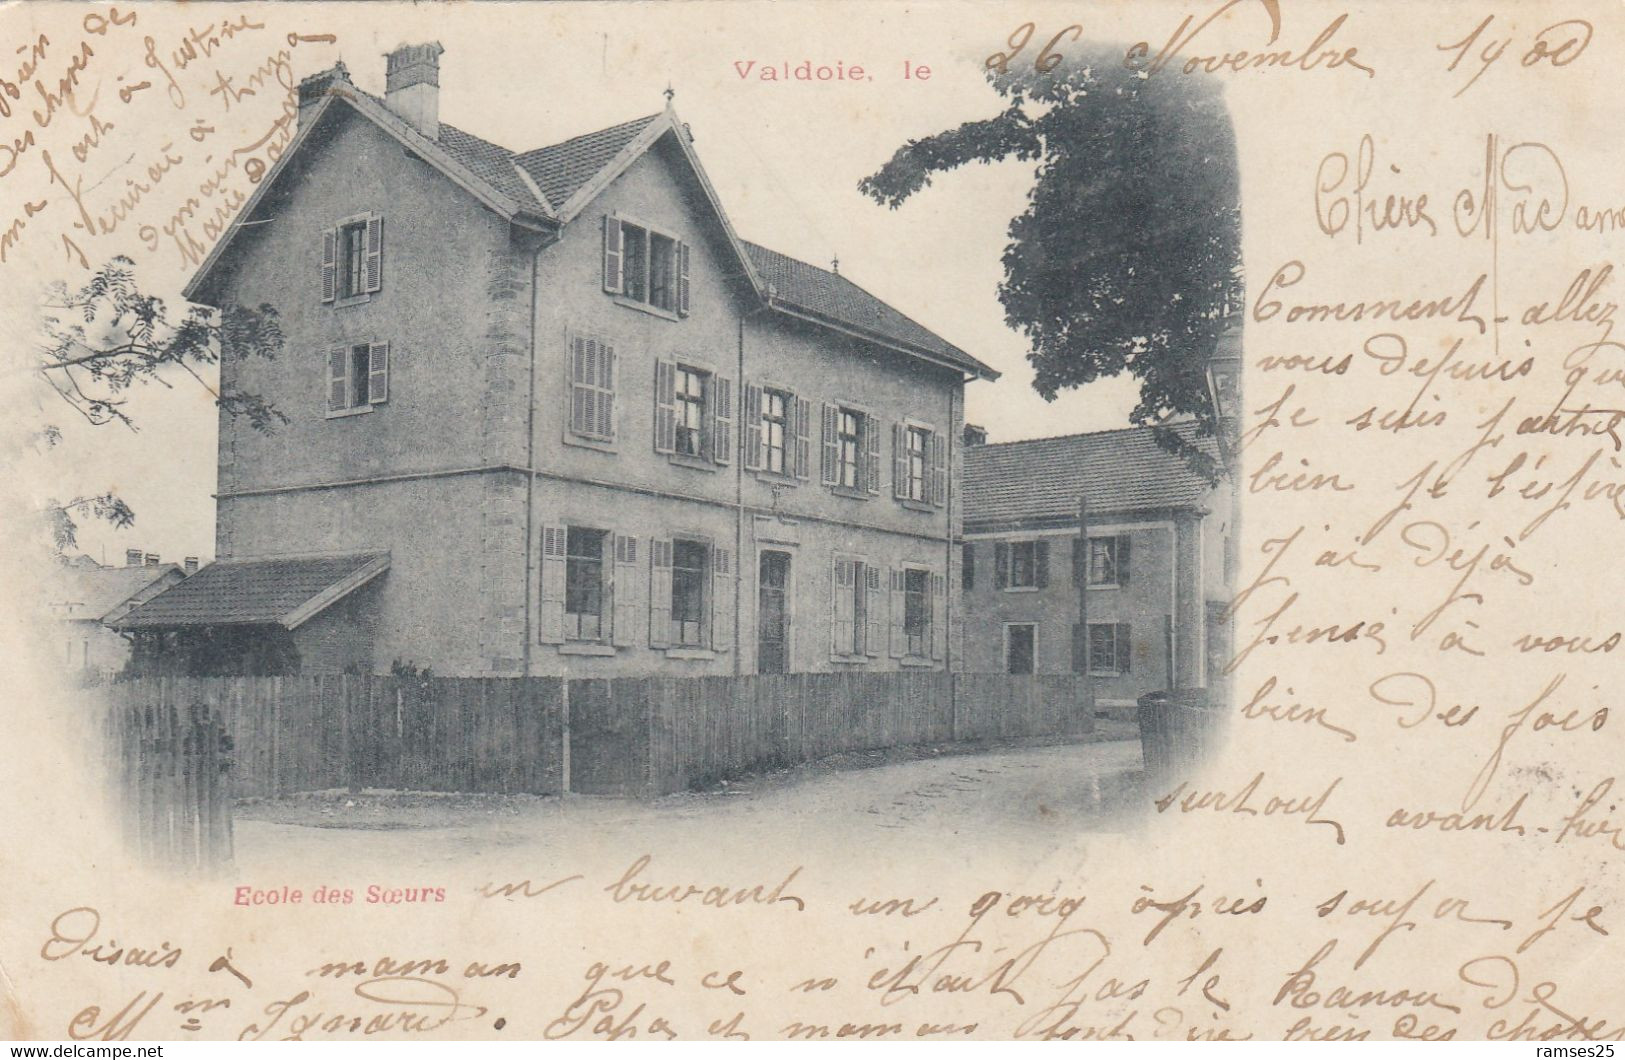 Valdoie, le 26 Novembre 1900
Chère Madame
Comment-allez
vous depuis que
je suis partie
bien je l'éspère
J'ai déjà
pensé à vous
bien des fois
surtout avant-hier
Ecole des Sœurs en buvant un gorg après souper je
disais à maman que ce n'était pas le Kanou de
Mm Ignard. Papa et maman font dire bien des choses
Bien
des choses de
ma part à Justine
j'ecrirai à Anna
demain
Marie
ramses25